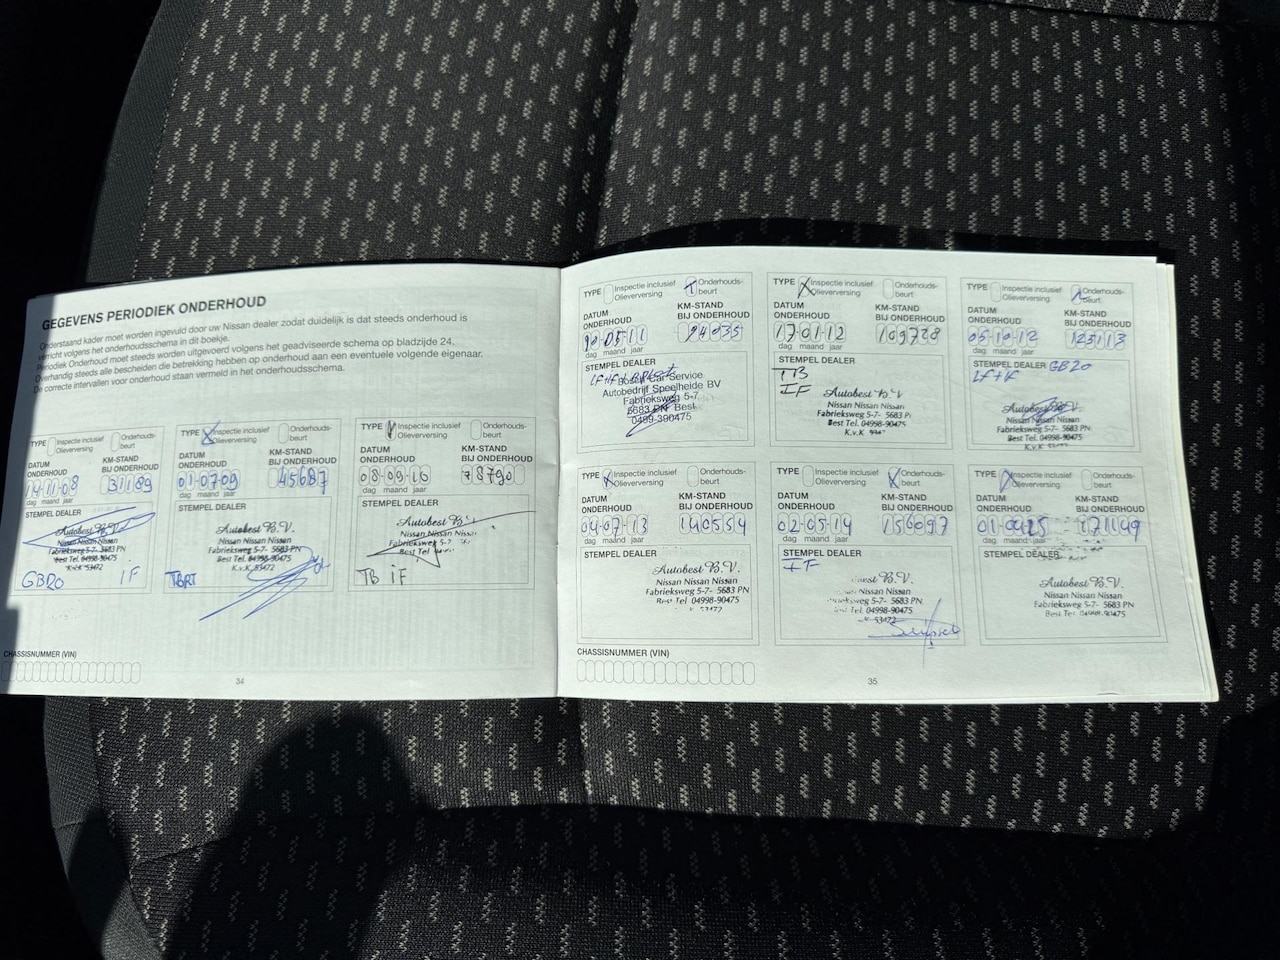 GEGEVENS PERIODIEK ONDERHOUD
Onderstaand kader moet worden ingevuld door uw Nissan dealer zodat duidelijk is dat steeds onderhoud is
verricht volgens het onderhoudsschema in dit boekje.
Periodiek Onderhoud moet steeds worden uitgevoerd volgens het geadviseerde schema op bladzijde 24.
Overhandig steeds alle bescheiden die betrekking hebben op onderhoud aan een eventuele volgende eigenaar.
De correcte intervallen voor onderhoud staan vermeld in het onderhoudsschema.
TYPE Inspectie inclusief Olieverversing Onderhouds-beurt
DATUM ONDERHOUD KM-STAND BIJ ONDERHOUD
14-11-08 31189
dag maand jaar
STEMPEL DEALER
Autobest B.V.
Nissan Nissan Nissan
Fabrieksweg 5-7- 5683 PN
Best Tel. 04998-90475
K.v.K 53472
GB20 IF
TYPE Inspectie inclusief Olieverversing Onderhouds-beurt
DATUM ONDERHOUD KM-STAND BIJ ONDERHOUD
01-07-09 45687
dag maand jaar
STEMPEL DEALER
Autobest B.V.
Nissan Nissan Nissan
Fabrieksweg 5-7- 5683 PN
Best Tel. 04998-90475
K.v.K. 53472
TYPE Inspectie inclusief Olieverversing Onderhouds-beurt
DATUM ONDERHOUD KM-STAND BIJ ONDERHOUD
78790
dag maand jaar
STEMPEL DEALER
Autobest B.V.
Nissan Nissan Nissan
Fabrieksweg 5-7-
Best Tel
TB IF
CHASSISNUMMER (VIN)
34
TYPE Inspectie inclusief Olieverversing Onderhouds-beurt
DATUM ONDERHOUD KM-STAND BIJ ONDERHOUD
05-11 94035
dag maand jaar
STEMPEL DEALER
LF+IF+
Bosch Car Service
Autobedrijf Speelheide BV
Fabrieksweg 5-7
5683 PN Best
0499-390475
TYPE Inspectie inclusief Olieverversing Onderhouds-beurt
DATUM ONDERHOUD KM-STAND BIJ ONDERHOUD
17-01-12 109728
dag maand jaar
STEMPEL DEALER
TB
IF
Autobest B.V.
Nissan Nissan Nissan
Fabrieksweg 5-7- 5683 P
Best Tel. 04998-90475
K.v.K
TYPE Inspectie inclusief Olieverversing Onderhouds-beurt
DATUM ONDERHOUD KM-STAND BIJ ONDERHOUD
05-10-12 123113
dag maand jaar
STEMPEL DEALER GB20
LF+IF
Autobest B.V.
Nissan Nissan Nissan
Fabrieksweg 5-7- 5683 PN
Best Tel. 04998-90475
K.v.K
TYPE Inspectie inclusief Olieverversing Onderhouds-beurt
DATUM ONDERHOUD KM-STAND BIJ ONDERHOUD
04-07-13 140554
dag maand jaar
STEMPEL DEALER
Autobest B.V.
Nissan Nissan Nissan
Fabrieksweg 5-7- 5683 PN
Best Tel 04998-90475
53472
TYPE Inspectie inclusief Olieverversing Onderhouds-beurt
DATUM ONDERHOUD KM-STAND BIJ ONDERHOUD
02-05-14 156097
dag maand jaar
STEMPEL DEALER
IF
B.V.
Nissan Nissan
5-7- 5683 PN
Tel. 04998-90475
53472
TYPE Inspectie inclusief Olieverversing Onderhouds-beurt
DATUM ONDERHOUD KM-STAND BIJ ONDERHOUD
171149
dag maand jaar
STEMPEL DEALER
Autobest B.V.
Nissan Nissan Nissan
Fabrieksweg 5-7- 5683 PN
Best Tel. 04998-90475
CHASSISNUMMER (VIN)
35